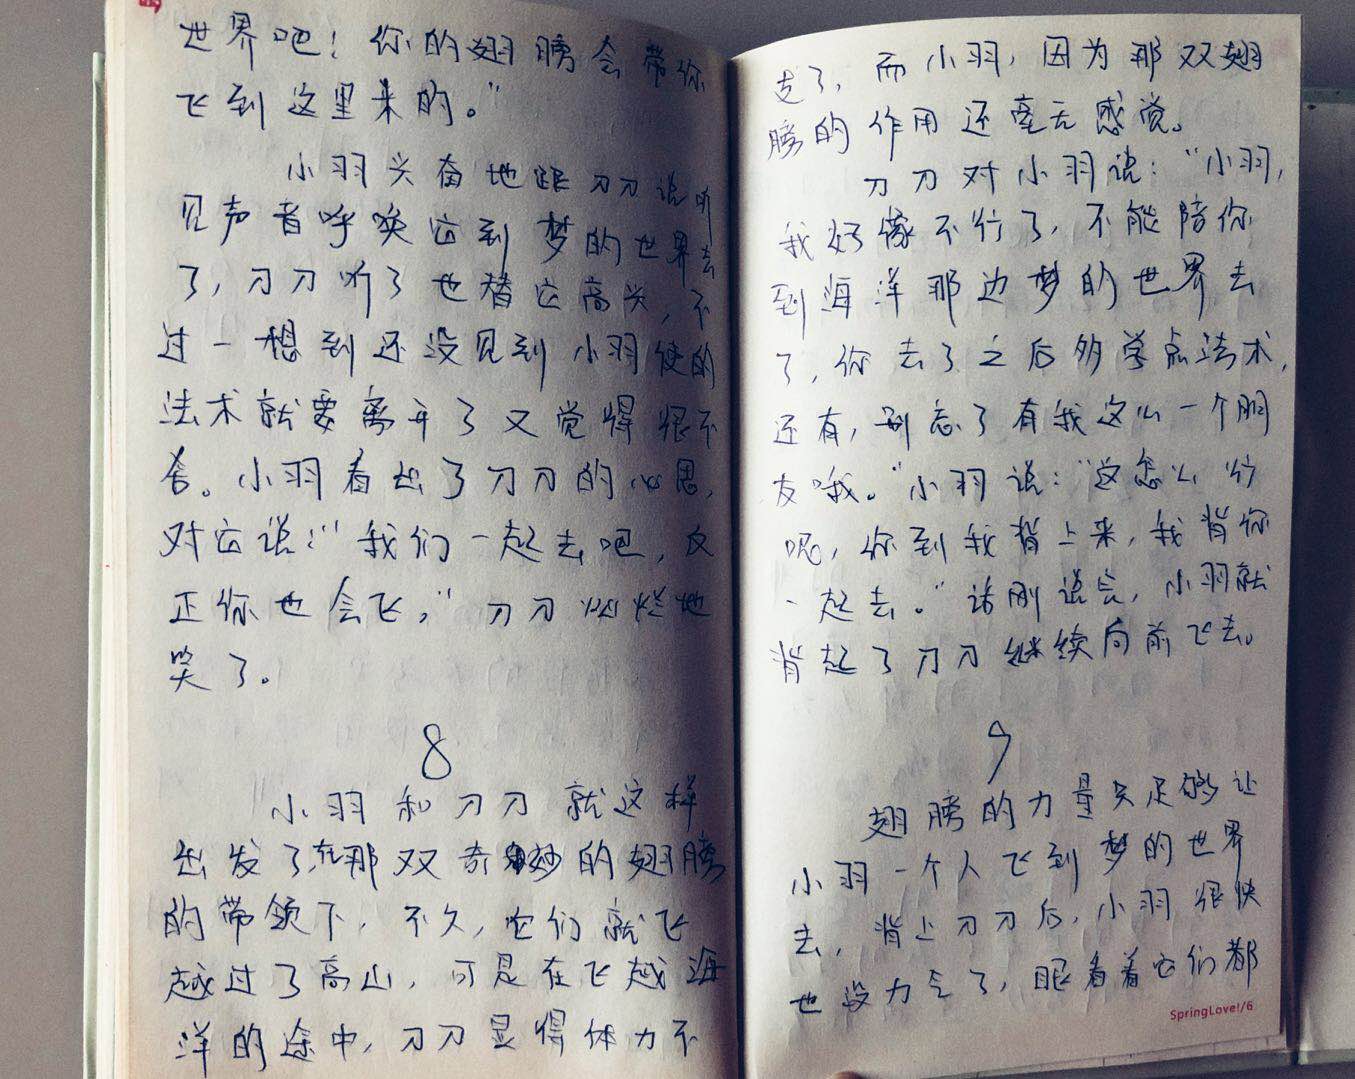 世界吧！你的翅膀会带你
飞到这里来的。”
小羽兴奋地跟刀刀说听
见声音呼唤它到梦的世界去
了，刀刀听了也替它高兴，不
过一想到还没见到小羽使的
法术就要离开了又觉得很不
舍。小羽看出了刀刀的心思，
对它说：“我们一起去吧，反
正你也会飞，”刀刀灿烂地
笑了。
8
小羽和刀刀就这样
出发了，在那双奇妙的翅膀
的带领下，不久，它们就飞
越过了高山，可是在飞越海
洋的途中，刀刀显得体力不
支了，而小羽，因为那双翅
膀的作用还毫无感觉。
刀刀对小羽说：“小羽，
我好像不行了，不能陪你
到海洋那边梦的世界去
了，你去了之后多学点法术，
还有，别忘了有我这么一个朋
友哦。”小羽说：“这怎么行
呢，你到我背上来，我背你
一起去。”话刚说完，小羽就
背起了刀刀继续向前飞去。
9
翅膀的力量只足够让
小羽一个人飞到梦的世界
去，背上刀刀后，小羽很快
也没力气了，眼看着它们都
SpringLove!/6